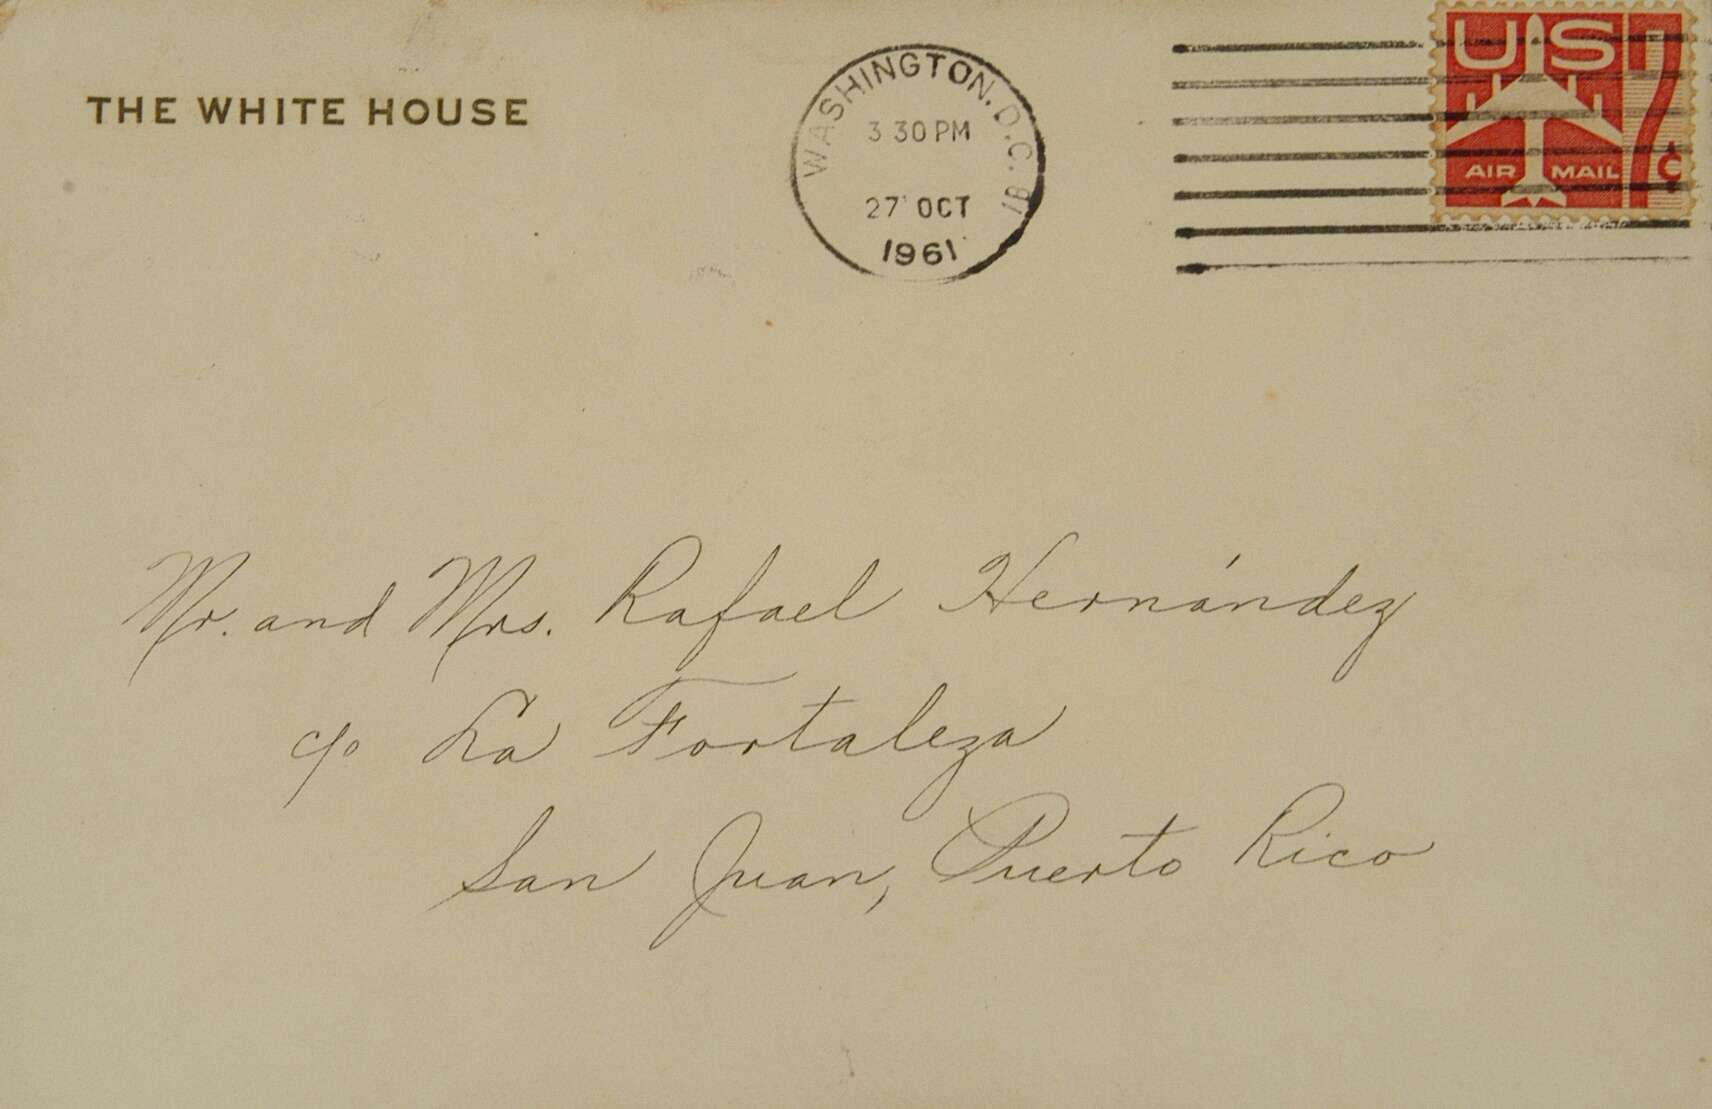 THE WHITE HOUSE
WASHINGTON, D.C.
3 30 PM
27 OCT
1961
US 7c
AIR MAIL
Mr. and Mrs. Rafael Hernández
c/o La Fortaleza
San Juan, Puerto Rico